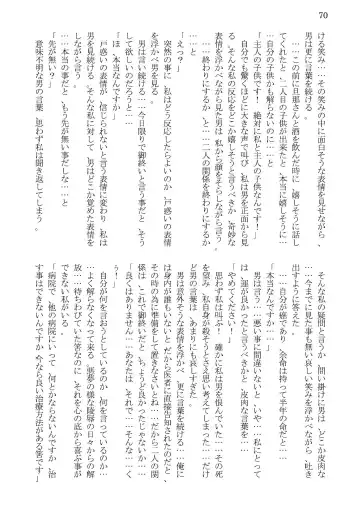 70
ける笑み…その笑みの中に面白そうな表情を見せながら、
男は更に言葉を続ける。
「この前に旦那さんと酒を飲んだ時に……嬉しそうに話し
てくれたと、二人目の子供が出来たと、本当に嬉しそうに…
…自分の子供かも解らないのに……と」
「主人の子供です！　絶対に私と主人の子供なんです！」
自分でも驚くほどに大きな声で叫び、男を正面から見
る、そんな私の反応をどこか嬉しそうと言うべきか、奇妙な
表情を浮かべながら見た男は、私から顔をそらしながら言う。
「……終わりにするか、と……二人の関係を終わりにするか
……と」
「えっ？」
突然の事に、私はどう反応したらよいのか、戸惑いの表情
を浮かべ男を見る。
男は言い続ける……今日限りで御終いと言う事だと、そう
して欲しいのだろう……と
「ほ、本当なんですか」
戸惑いの表情が、信じられないと言う表情に変わり、私は
男を見続ける、そんな私に対して、男はどこか覚めた表情を
しながら言う。
「……本当の事だと、もう先が無い事だしな……と」
「先が無い？」
意味不明な男の言葉、思わず私は聞き返してしまう。
そんな私の疑問と言うか、問い掛けに男は、どこか皮肉な
……今までに見た事も無い哀しい笑みを浮かべながら、吐き
出すように答えた
「……自分が癌であり、余命は持って半年の命だと……」
「本当なんですか……」
男は言う……悪い事に間違いないと、いや……私にとって
は、運が良かったと言うべきかと、皮肉な言葉を……
「やめてください！」
思わず私は叫ぶ！　確かに私は男を恨んでいた……
めに、私自身が殺そうとさえ思い考えてしまった、その死
ど男の言葉は、あまりにも哀しすぎた
男は意外そうな表情を浮かべ、更に言葉を続ける……俺に
は身内も誰もいない、だから医者に直接告知されたのだと、
その時の為に準備をして置きなさいと……だから二人の関
係は、これで御終いだと、ちょうど良かったじゃないかと
「良くはありません……あなたは、それで……そんな……く
う！」
自分が何を言おうとしているのか、何を言っているのか…
…よく解らなくなって来る、悪夢の様な陵辱の日々からの解
放……待ちわびていた筈なのに、それを心の底から喜ぶ事が
できない私がいる。
「病院で、他の病院にいって、何とかならないんですか、治
す事はできないんですか、今なら良い治療方法がある筈です」